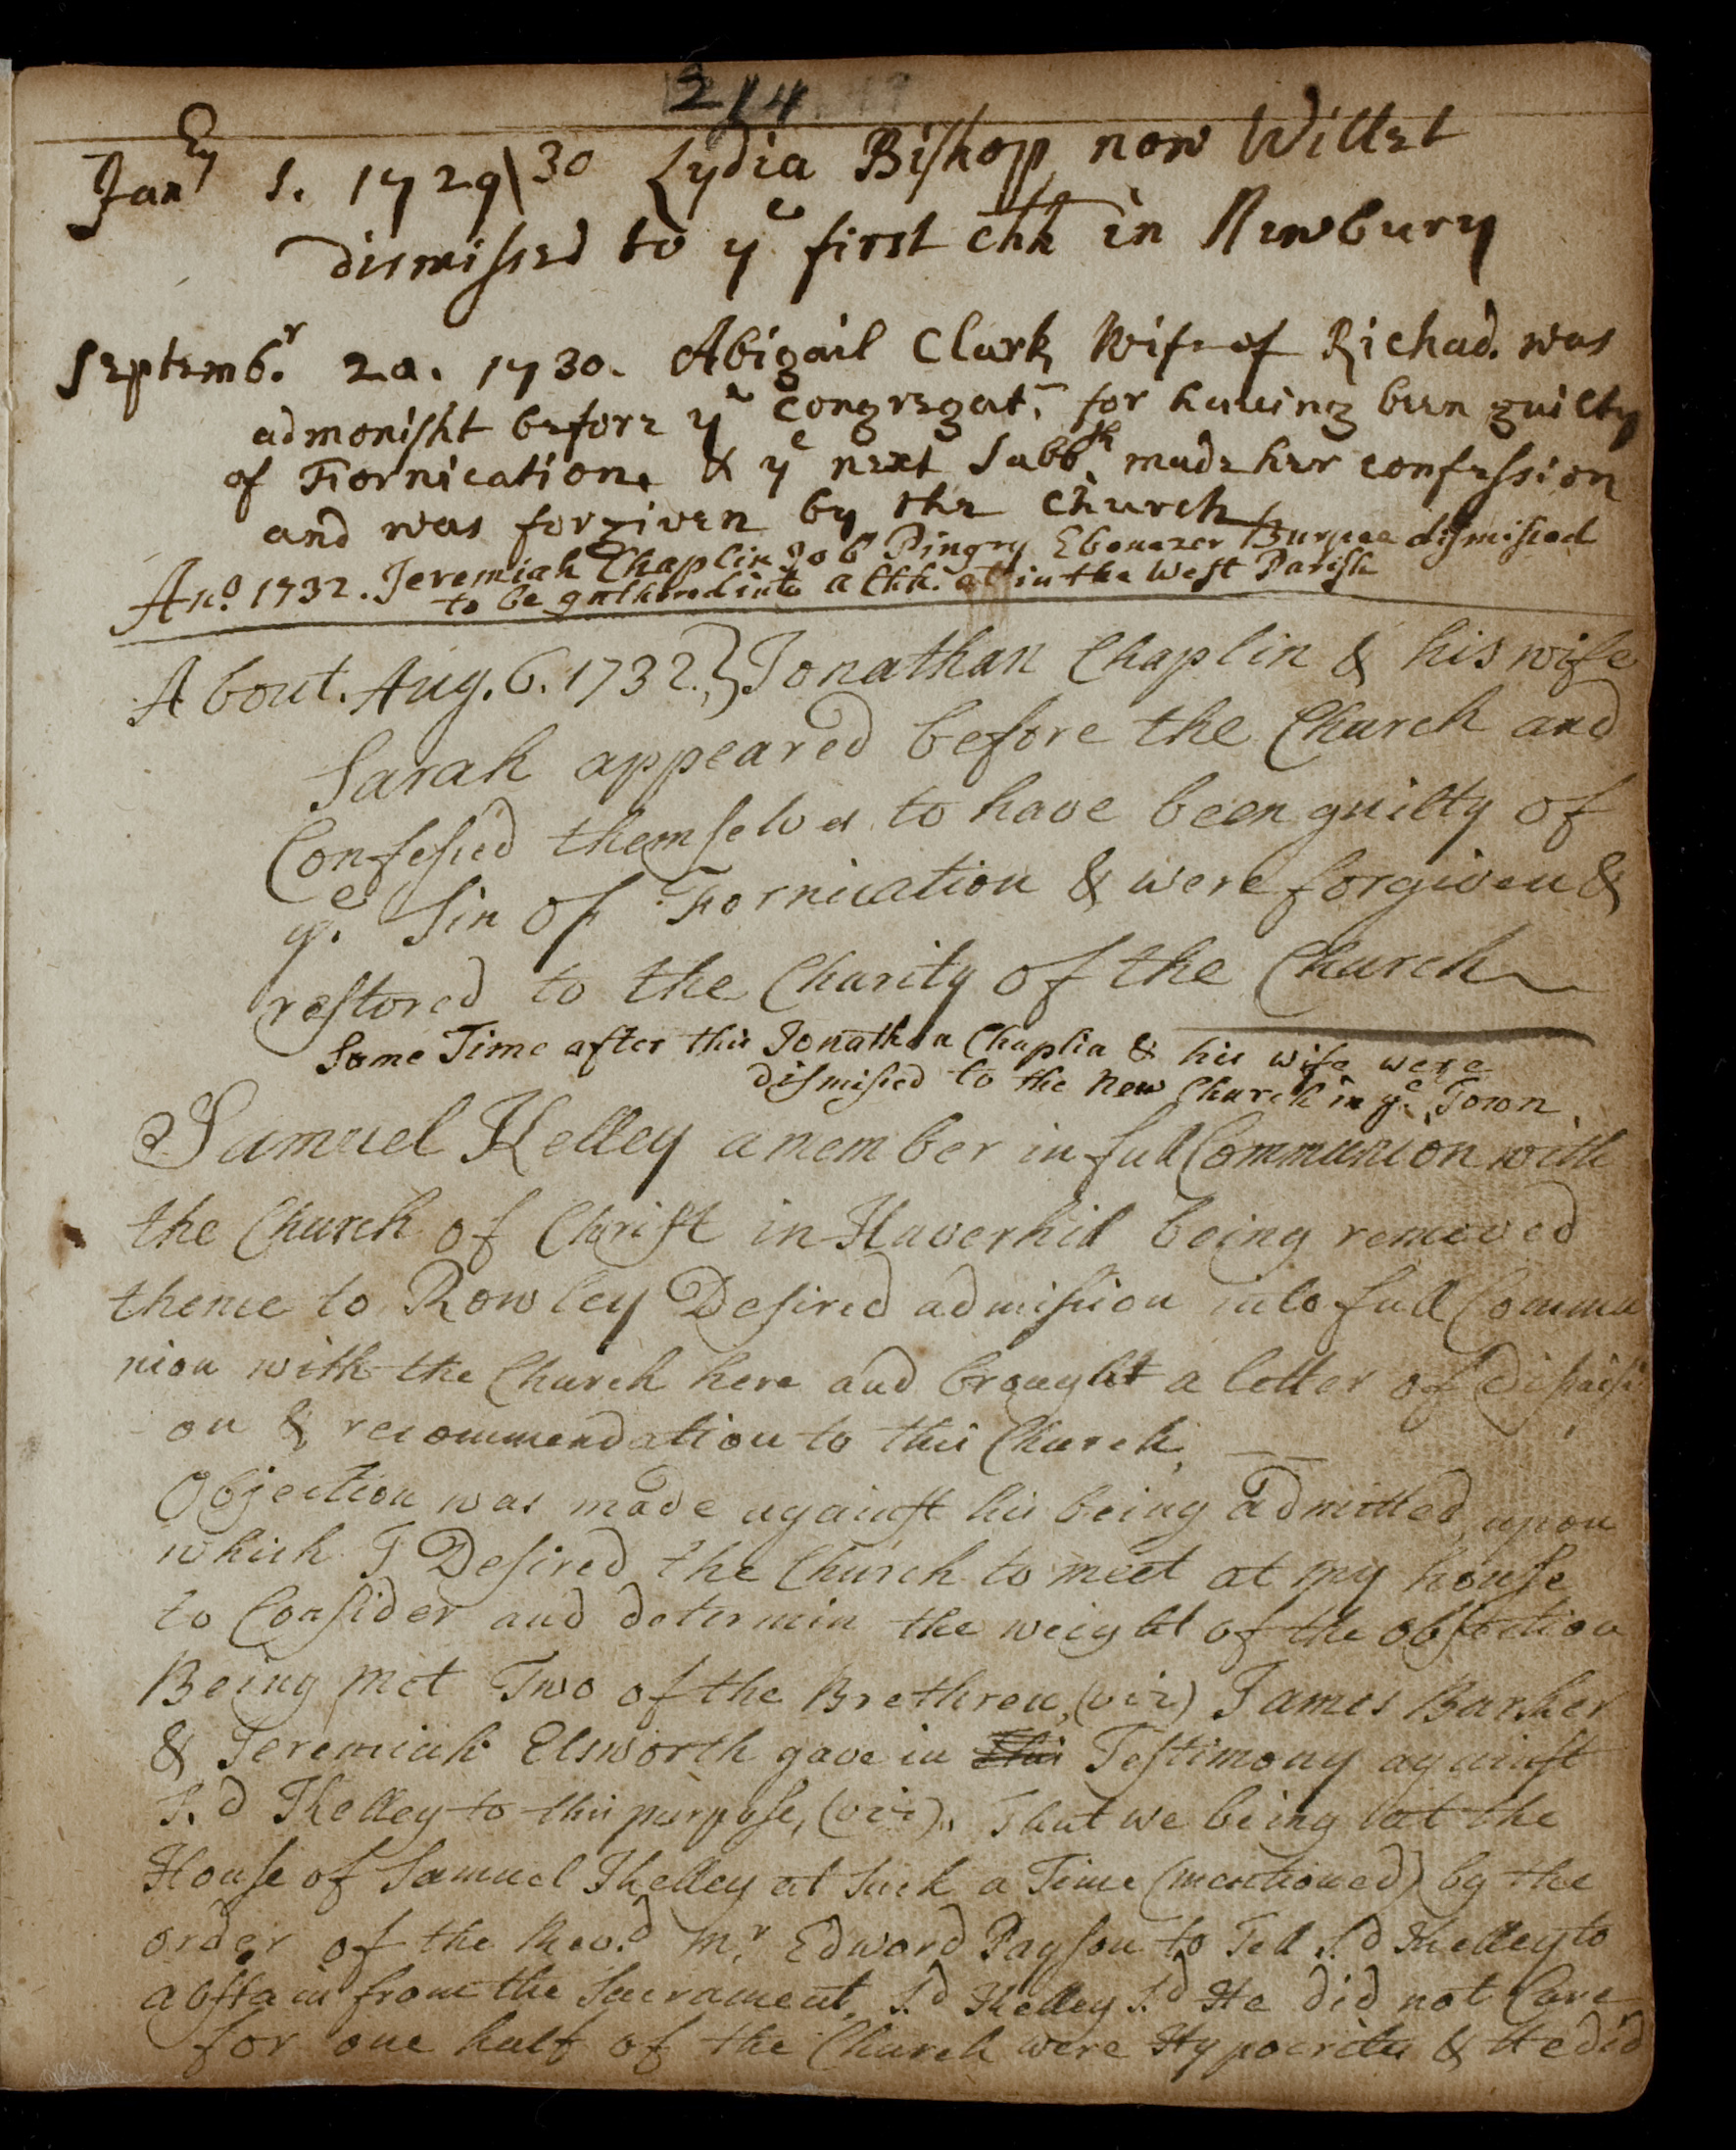 214
Jan.ry 1. 1729\30 Lydia Bishop now Willet
dismissed to ye first chh in Newbury
Septembr. 20. 1730. Abigail Clark Wife of Richad. was
admonisht before ye Congregat. for having been guilty
of Fornication. & ye next Sabb.th made her confession
and was forgiven by the Church
Ano. 1732. Jeremiah Chaplin Job Pingry Ebenezer Burpee dismissed
to be gathered into a Chh. in the West Parish
About. Aug. 6. 1732.} Jonathan Chaplin & his wife
Sarah appeared before the Church and
Confessed themselves to have been guilty of
ye. Sin of Fornication & were forgiven &
restored to the Charity of the Church
Some Time after this Jonathan Chaplin & his wife were
dismissed to the New Church in ye. Town
Samuel Kelley a member in full Communion with
the Church of Christ in Haverhil being removed
thence to Rowley Desired admission into full Commu
nion with the Church here and brought a letter of Dismissi
on & recommendation to this Church.
Objection was made against his being admitted, upon
which I Desired the Church to meet at my house
to Consider and determin the weight of the objection
Being met Two of the Brethren, (viz) James Barker
& Jeremiah Elsworth gave in this Testimony against
S.d Kelley to this purpose, (viz). That we being at the
House of Samuel Kelley at such a Time (mentioned) by the
order of the Rev.d Mr. Edward Payson to Tell S.d Kelley to
abstain from the Sacrament, S.d Kelley S.d He did not Care
for one half of the Church were Hypocrites & He did